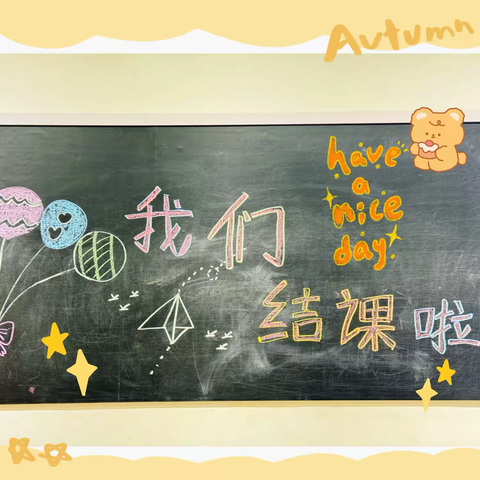 Autumn
have
a
nice
day
我们
结课啦